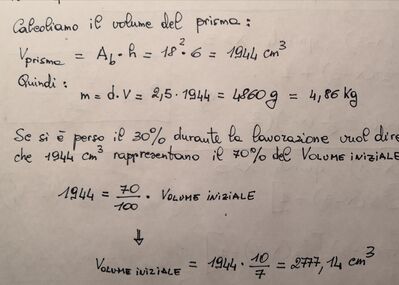 Calcoliamo il volume del prisma :
Vprisma = Ab · h = 18² · 6 = 1944 cm³
Quindi :
m = d · V = 2,5 · 1944 = 4860 g = 4,86 kg
Se si è perso il 30% durante la lavorazione vuol dire
che 1944 cm³ rappresentano il 70% del VOLUME INIZIALE
1944 = 70/100 · VOLUME INIZIALE
⇓
VOLUME INIZIALE = 1944 · 10/7 = 2777,14 cm³